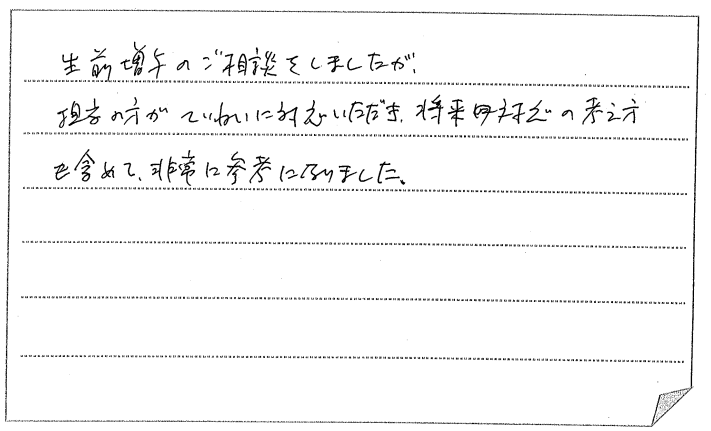 生前増与のご相談をしましたが、
担当の方がていねいに対応いただき、将来の対応の考え方
も含めて、非常に参考になりました。